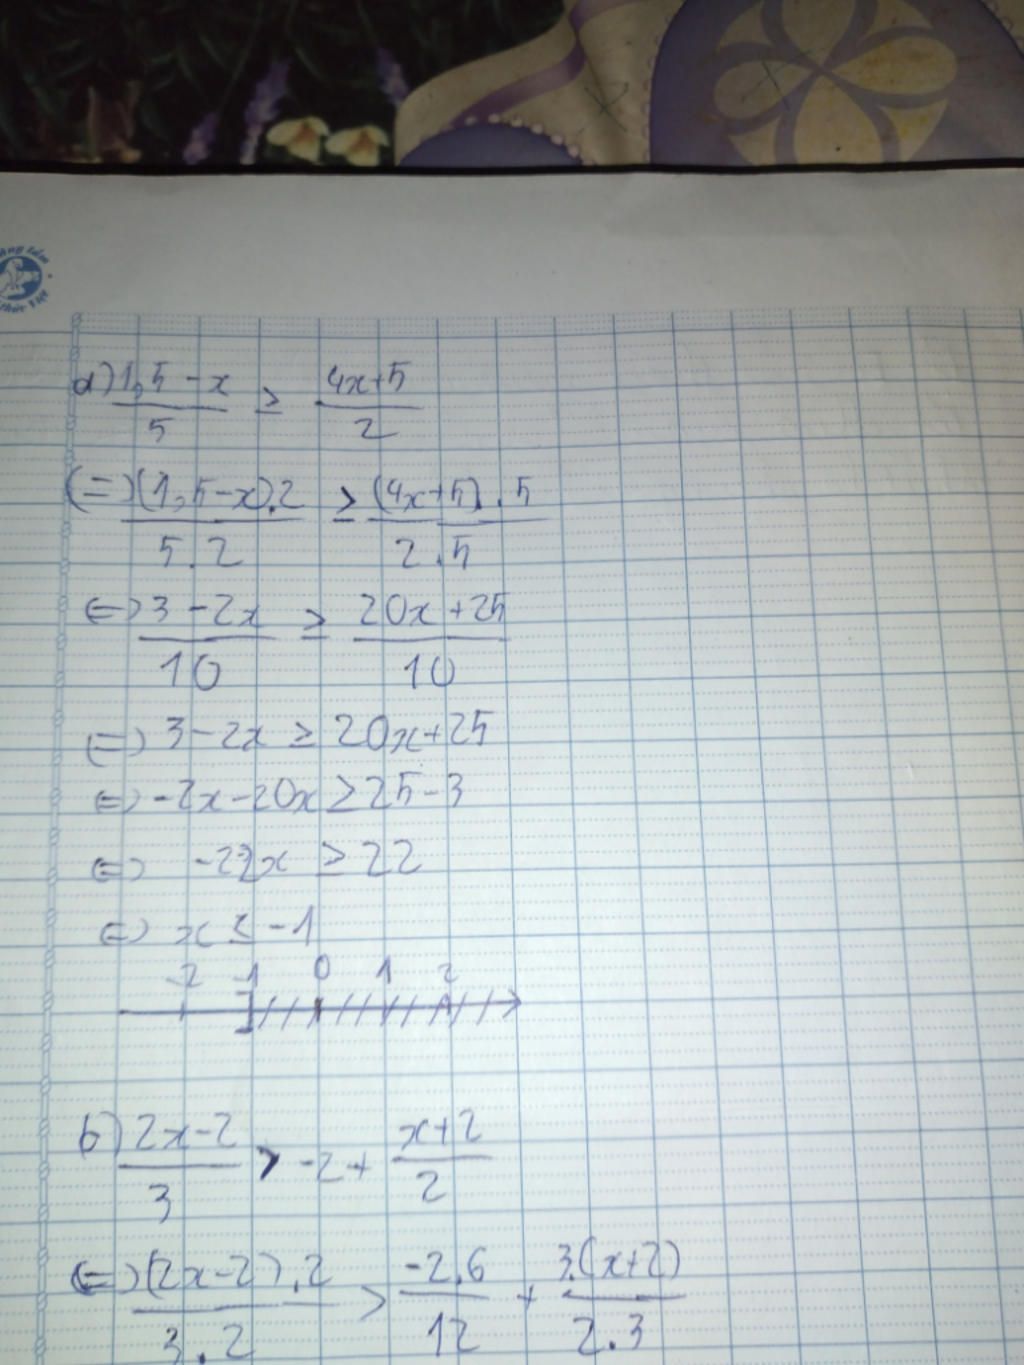 a) (1,5-x)/5 ≥ (4x+5)/2
(=) ((1,5-x).2)/(5.2) ≥ ((4x+5).5)/(2.5)
(=) (3-2x)/10 ≥ (20x+25)/10
(=) 3-2x ≥ 20x+25
(=) -2x-20x ≥ 25-3
(=) -22x ≥ 22
(=) x ≤ -1
-2 -1 0 1 2
b) (2x-2)/3 > -2 + (x+2)/2
(=) ((2x-2).2)/(3.2) > (-2.6)/12 + (3.(x+2))/(2.3)